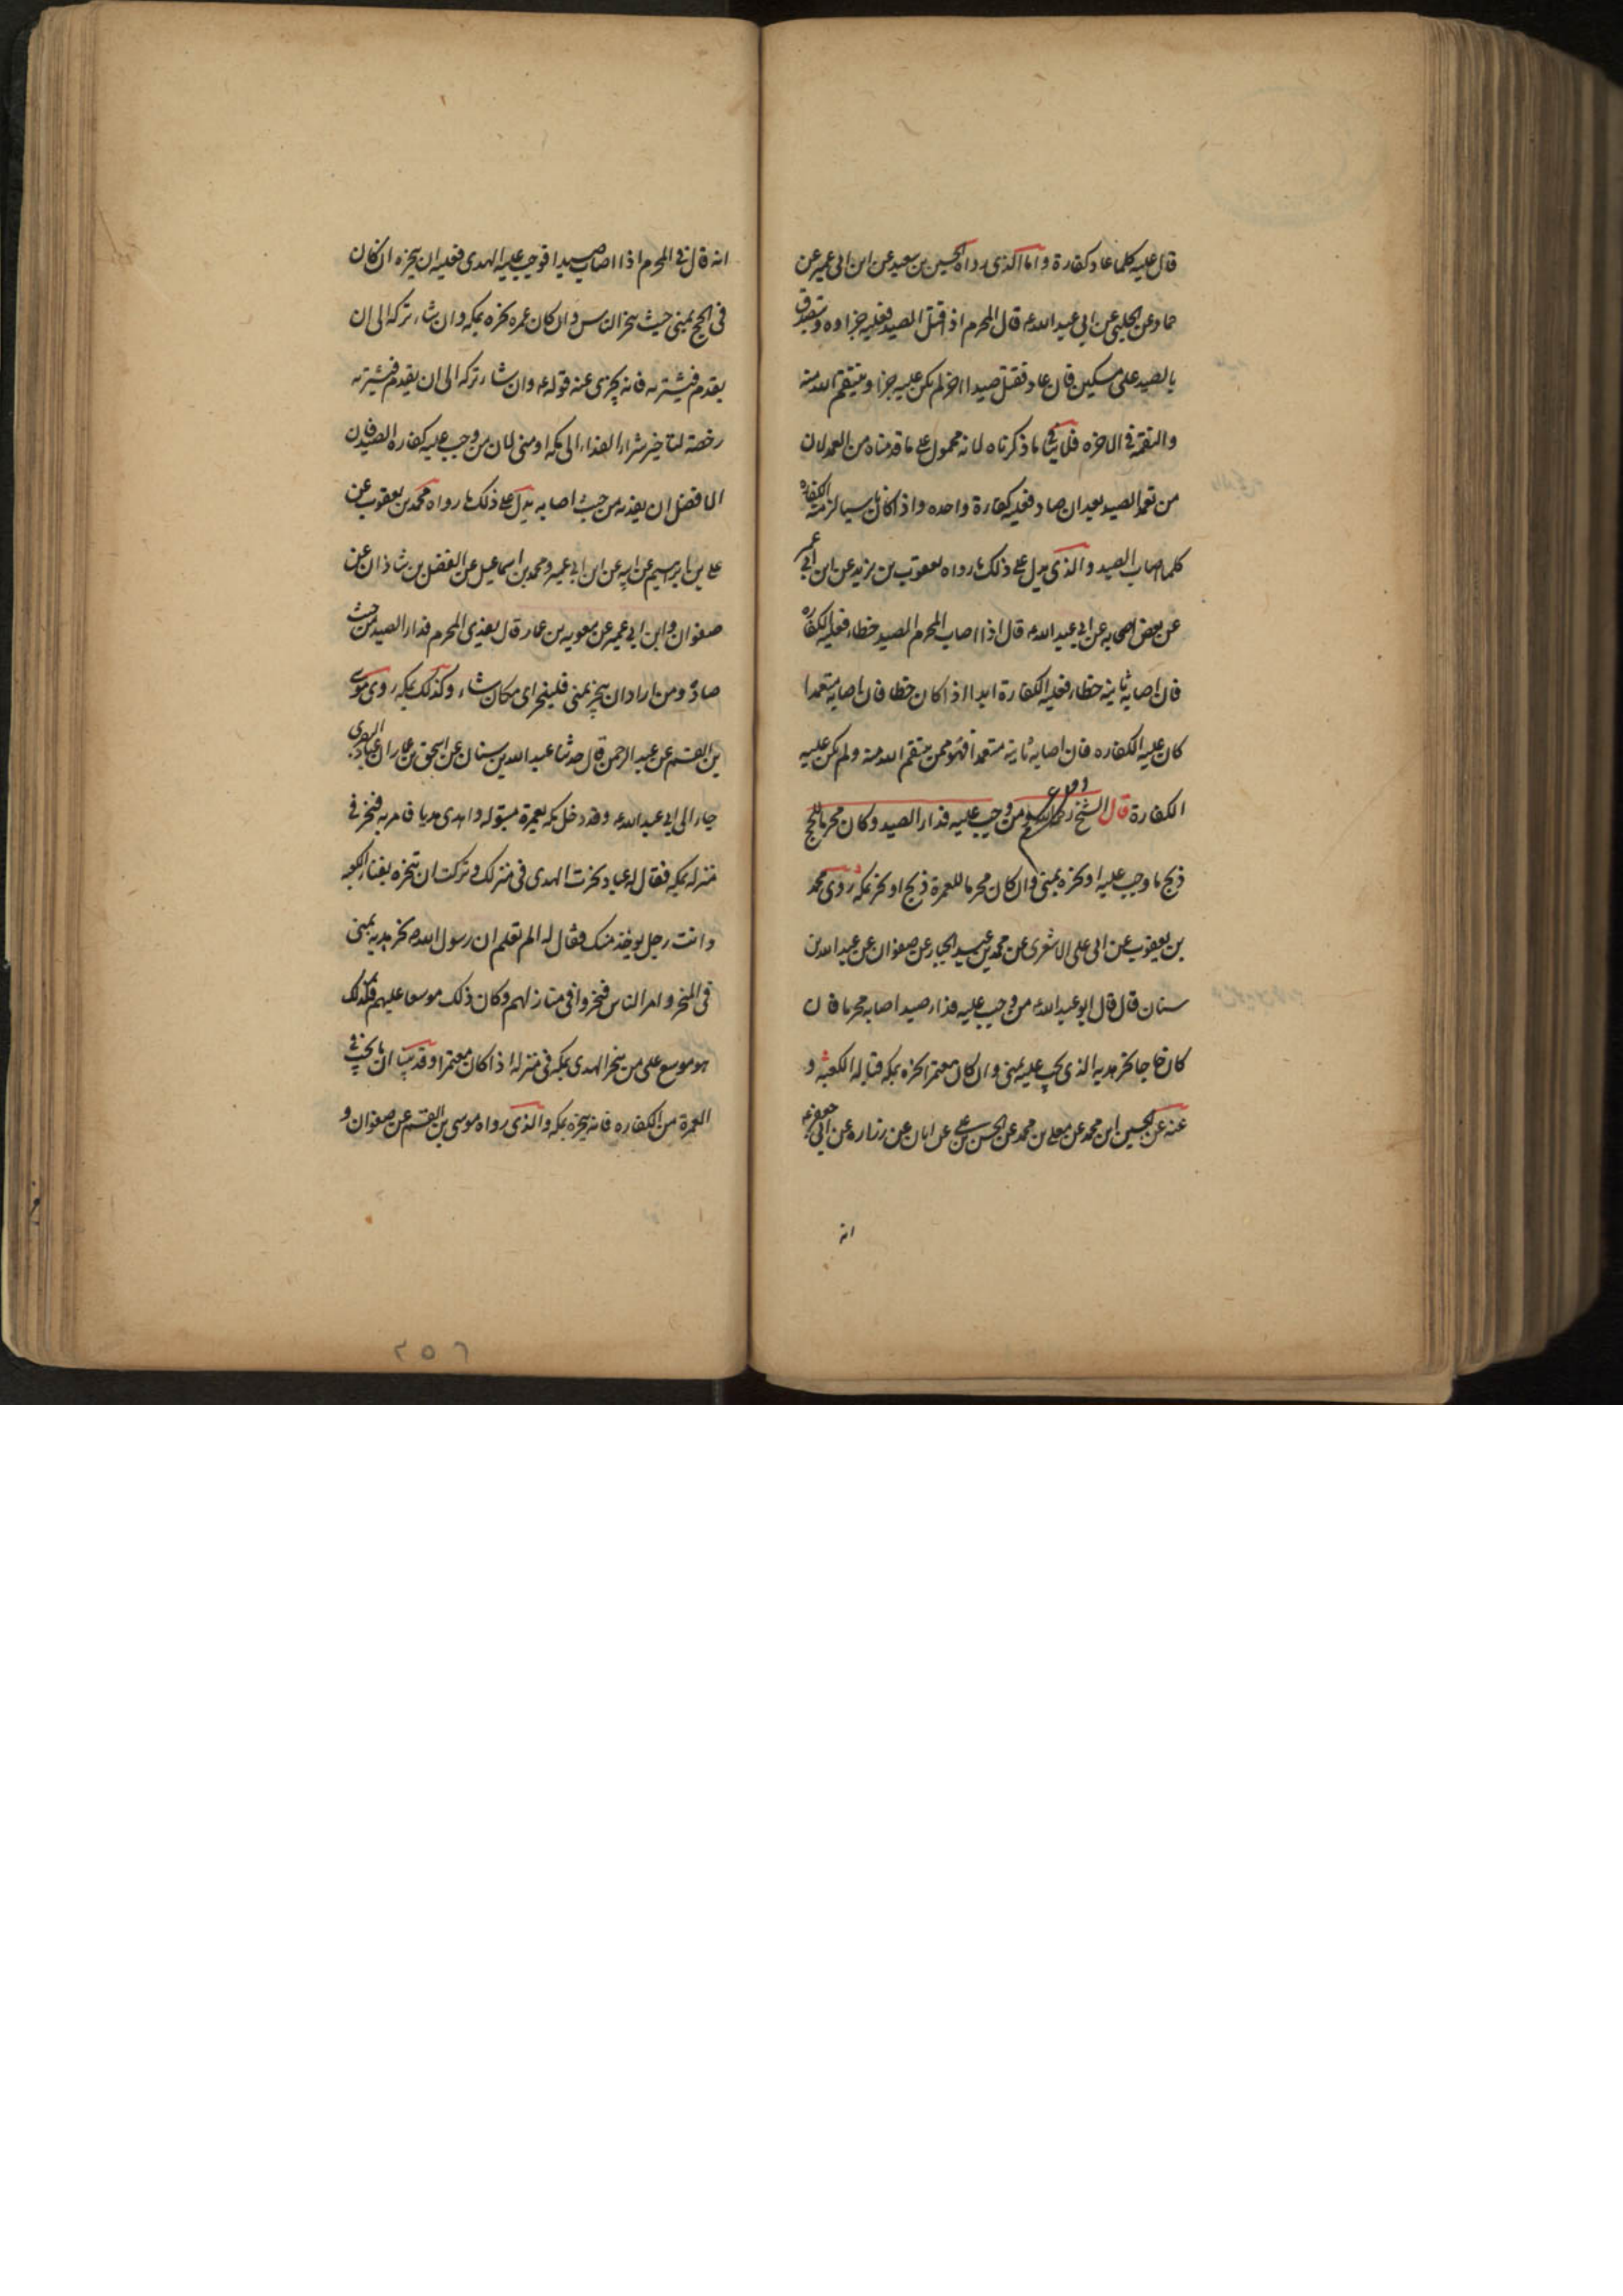 قال عليه كلما عاد كفارة واما الذى رواه الحسين بن سعيد عن ابن ابى عمير عن
حماد عن الحلبى عن ابى عبد الله ع قال المحرم اذا قتل الصيد فعليه جزاوه ويتصدق
بالصيد على مسكين فان عاد فقتل صيدا اخر لم يكن عليه جزا وينتقم الله منه
والنقمة فى الاخره فلا ينافى ما ذكرناه لانه محمول على ما قدمناه من العمد لان
من تعمد الصيد بعد ان صاد فعليه كفارة واحده واذا كان ناسيا لزمته الكفاره
كلما اصاب الصيد والذى يدل على ذلك ما رواه يعقوب بن يزيد عن ابن ابى عمير
عن بعض اصحابه عن ابى عبد الله ع قال اذا اصاب المحرم الصيد خطاء فعليه الكفاره
فان اصابه ثانية خطاء فعليه الكفارة ابدا اذا كان خطا فان اصابه متعمدا
كان عليه الكفاره فان اصابه ثانية متعمدا فهو ممن ينتقم الله منه ولم يكن عليه
الكفارة قال الشيخ رحمه الله ومن وجب عليه فداء الصيد وكان محرما للحج
ذبح ما وجب عليه او نحره بمنى وان كان محرما للعمرة ذبح او نحر بمكه روى محمد
بن يعقوب عن ابى على الاشعرى عن محمد بن عبد الجبار عن صفوان عن عبد الله بن
سنان قال قال ابو عبد الله ع من وجب عليه فداء صيد اصابه محرما فان
كان حاجا نحر هديه الذى يجب عليه بمنى وان كان معتمرا نحره بمكه قبالة الكعبة و
عنه عن الحسين ابن محمد عن معلى بن محمد عن الحسن بن على عن ابان عن زراره عن ابى جعفر ع
انه
انه قال فى المحرم اذا اصاب صيدا فوجب عليه الهدى فعليه ان ينحره ان كان
فى الحج بمنى حيث ينحر الناس وان كان عمره نحره بمكه وان شاء تركه الى ان
يقدم فيشتريه فانه يجزى عنه قوله ع وان شاء تركه الى ان يقدم فيشتريه
رخصة لتاخير شراء الفداء الى مكه او منى لان من وجب عليه كفاره الصيد فان
الافضل ان يفديه من حيث اصابه يدل على ذلك ما رواه محمد بن يعقوب عن
على بن ابرهيم عن ابيه عن ابن ابى عمير ومحمد بن اسماعيل عن الفضل بن شاذان عن
صفوان وابن ابى عمير عن معويه بن عمار قال يفدى المحرم فداء الصيد من حيث
صاد ومن اراد ان ينحر بمنى فلينحر اى مكان شاء وكذلك بمكه روى موسى
بن القسم عن عبد الرحمن قال حدثنا عبد الله بن سنان عن اسحق بن عمار ان عباد البصرى
جاء الى ابى عبد الله ع وقد دخل مكه بعمرة مبتوله واهدى هديا فامر به فنحر فى
منزله بمكه فقال له عباد نحرت الهدى فى منزلك وتركت ان تنحره بفناء الكعبه
وانت رجل يوخذ منك فقال له الم تعلم ان رسول الله ص نحر هديه بمنى
فى المنحر وامر الناس فنحروا فى منازلهم وكان ذلك موسعا عليهم فكذلك
هو موسع على من ينحر الهدى بمكه فى منزله اذا كان معتمرا وقد بينا ان ما يجب فى
العمرة من الكفاره فانه ينحره بمكه والذى رواه موسى بن القسم عن صفوان و
٢٥٦